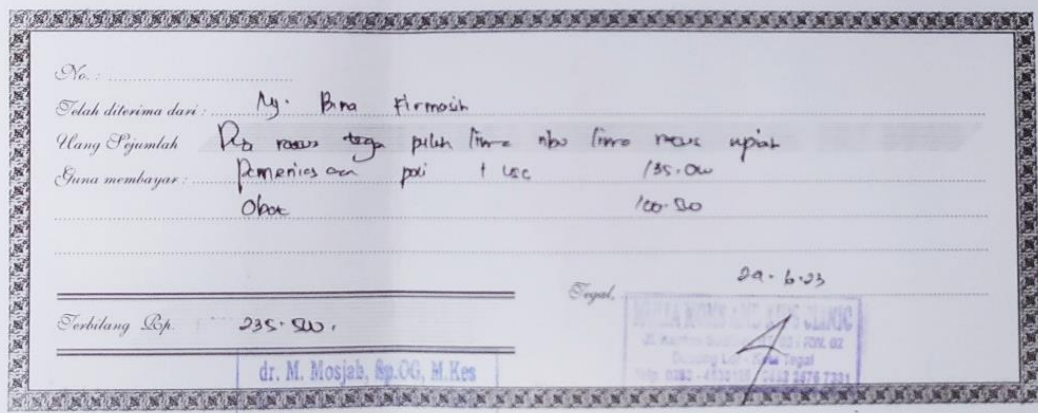 No. :
Telah diterima dari : Ny. Bina Firmasih
Uang Sejumlah Dua ratus tiga puluh lima ribu lima ratus rupiah
Guna membayar : Pemeriksaan poli + USG 135.000
Obat 100.500
Tegal, 29.6.23
Terbilang Rp. 235.500.
dr. M. Mosjab, Sp.OG, M.Kes
Kota Tegal